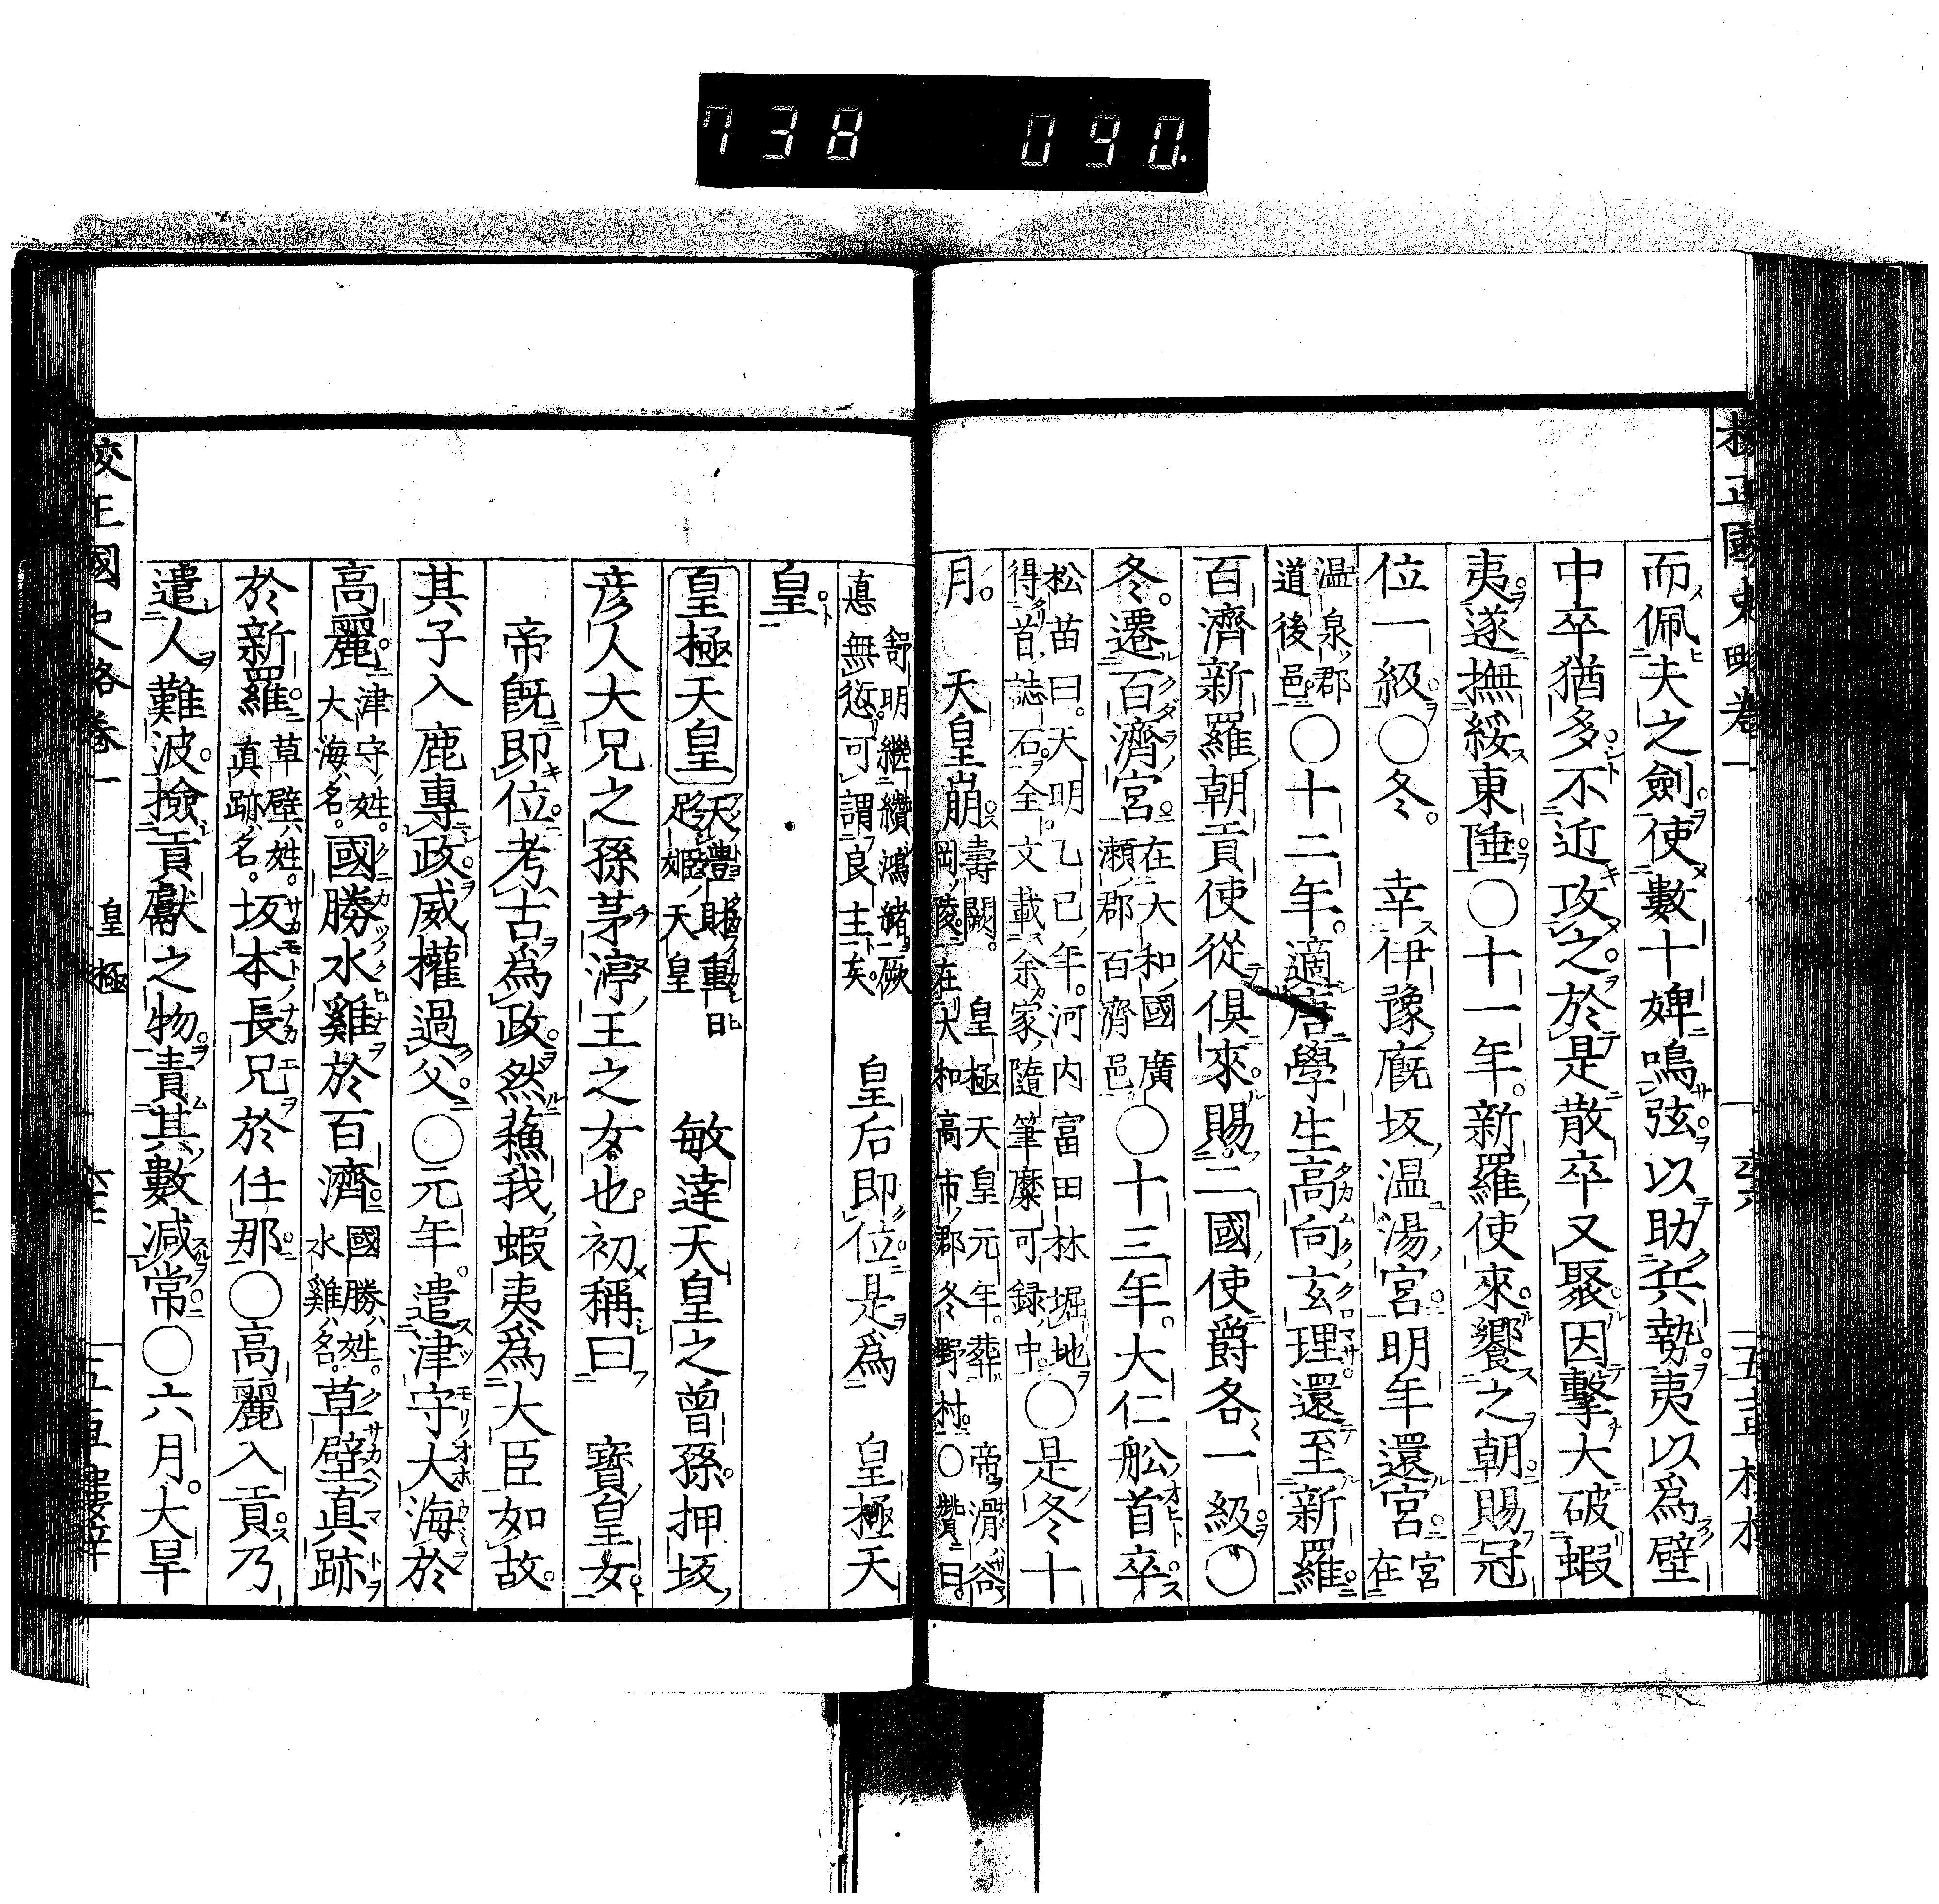 738 090.
校正國史略卷一
而佩夫之劍使數十婢鳴弦以助兵勢夷以爲壁
中卒猶多不近攻之於是散卒又聚因擊大破蝦
夷遂撫綏東陲〇十一年新羅使來饗之朝賜冠
位一級〇冬幸伊豫廐坂温湯宮明年還宮宮在
温泉郡道後邑〇十二年適唐學生高向玄理還至新羅
百濟新羅朝貢使從俱來賜二國使爵各一級〇
冬遷百濟宮在大和國廣瀬郡百濟邑〇十三年大仁舩首卒
松苗曰天明乙巳年河内富田林堀地得首誌石全文載余家隨筆糜可録中〇是冬十
月天皇崩壽闕皇極天皇元年葬帝滑谷岡陵在大和高市郡冬野村〇贊曰
舒明繼纘鴻緒厥悳無愆可謂良主矣皇后即位是爲皇極天
皇
皇極天皇天豐財重日足姫天皇敏達天皇之曾孫押坂
彦人大兄之孫茅渟王之女也初稱曰寶皇女
帝既即位考古爲政然蘓我蝦夷爲大臣如故
其子入鹿專政威權過父〇元年遣津守大海於
高麗津守姓大海名國勝水雞於百濟國勝姓水雞名草壁真跡
於新羅草壁姓真跡名坂本長兄於任那〇高麗入貢乃
遣人難波撿貢獻之物責其數減常〇六月大旱
校正國史略卷一
皇極
五車樓梓